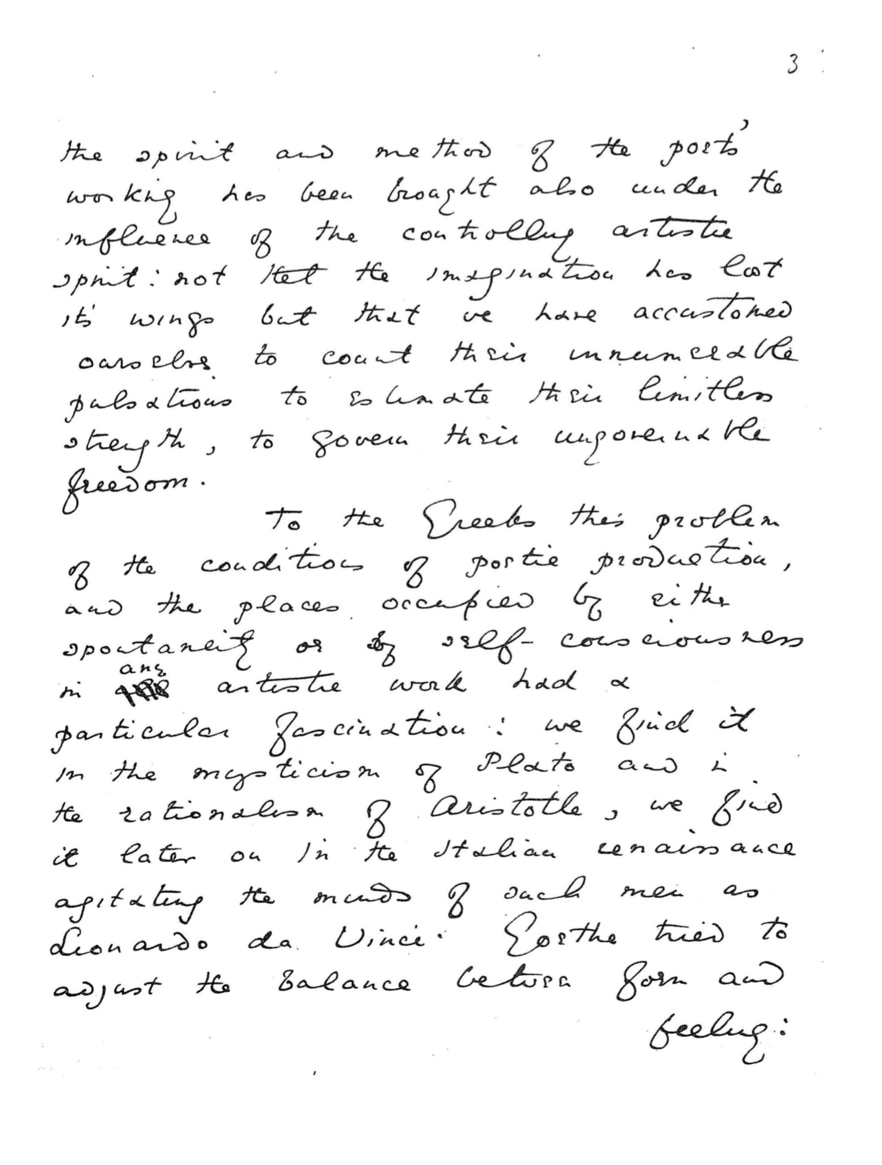 3
the spirit and method of the poets'
working has been brought also under the
influence of the controlling artistic
spirit: not that the imagination has lost
its wings but that we have accustomed
ourselves to count their innumerable
pulsations to estimate their limitless
strength, to govern their ungovernable
freedom.
To the Greeks this problem
of the conditions of poetic production,
and the places occupied by either
spontaneity or by self-consciousness
in any artistic work had a
particular fascination: we find it
in the mysticism of Plato and in
the rationalism of Aristotle, we find
it later on in the Italian renaissance
agitating the minds of such men as
Leonardo da Vinci. Goethe tried to
adjust the balance between form and
feeling: